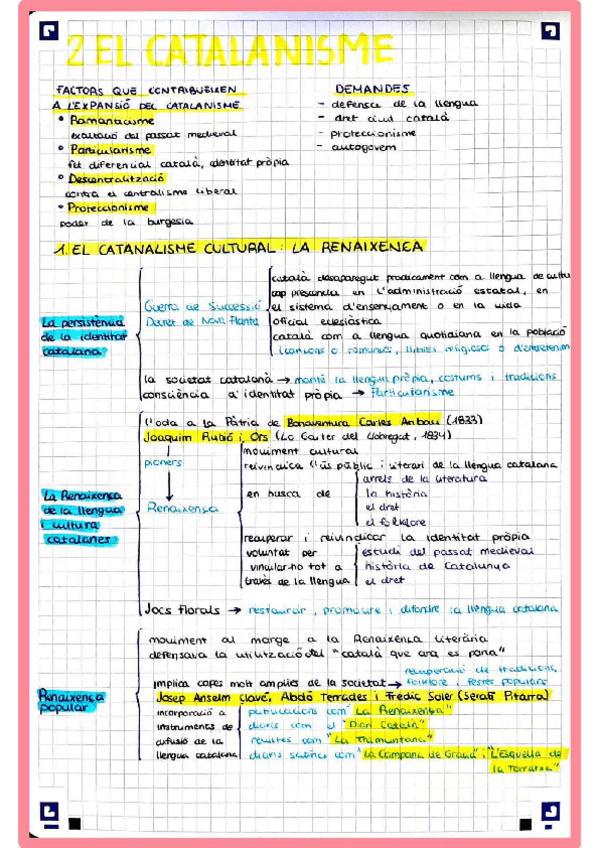 2 EL CATALANISME
FACTORS QUE CONTRIBUEIXEN
A L'EXPANSIÓ DEL CATALANISME
• Romanticisme
exaltació del passat medieval
• Particularisme
fet diferencial català, identitat pròpia
• Descentralització
contra el centralisme liberal
• Proteccionisme
poder de la burgesia
DEMANDES
- defensa de la llengua
- dret civil català
- proteccionisme
- autogovern
1. EL CATANALISME CULTURAL: LA RENAIXENÇA
La persistència
de la identitat
catalana
Guerra de Successió
Decret de Nova Planta
català desaparegut pràcticament com a llengua de cultu
cap presència en l'administració estatal, en
el sistema d'ensenyament o en la vida
oficial eclesiàstica
català com a llengua quotidiana en la població
(cançons o romanços, llibres religiosos o d'entretenim
la societat catalana → manté la llengua pròpia, costums i tradicions
consciència d'identitat pròpia → Particularisme
La Renaixença
de la llengua
i cultura
catalanes
l'oda a la Pàtria de Bonaventura Carles Aribau (1833)
Joaquim Rubió i Ors (Lo Gaiter del Llobregat, 1834)
pioners
Renaixença
moviment cultural
reivindica l'ús públic i literari de la llengua catalana
en busca de
arrels de la literatura
la història
el dret
el folklore
recuperar i reivindicar la identitat pròpia
voluntat per
vincular-ho tot a
través de la llengua
estudi del passat medieval
història de Catalunya
el dret
Jocs florals → restaurar, promoure i difondre la llengua catalana
Renaixença
popular
moviment al marge a la Renaixença literària
defensava la utilització del "català que ara es parla"
implica capes molt àmplies de la societat → recuperació de tradicions,
folklore i festes populars
Josep Anselm Clavé, Abdó Terrades i Fredic Soler (Serafí Pitarra)
incorporació a
instruments de
difusió de la
llengua catalana
publicacions com "La Renaixença"
diaris com el "Diari Català"
revistes com "La Tramuntana"
diaris satírics com "La Campana de Gràcia" i "L'Esquella de
la Torratxa"